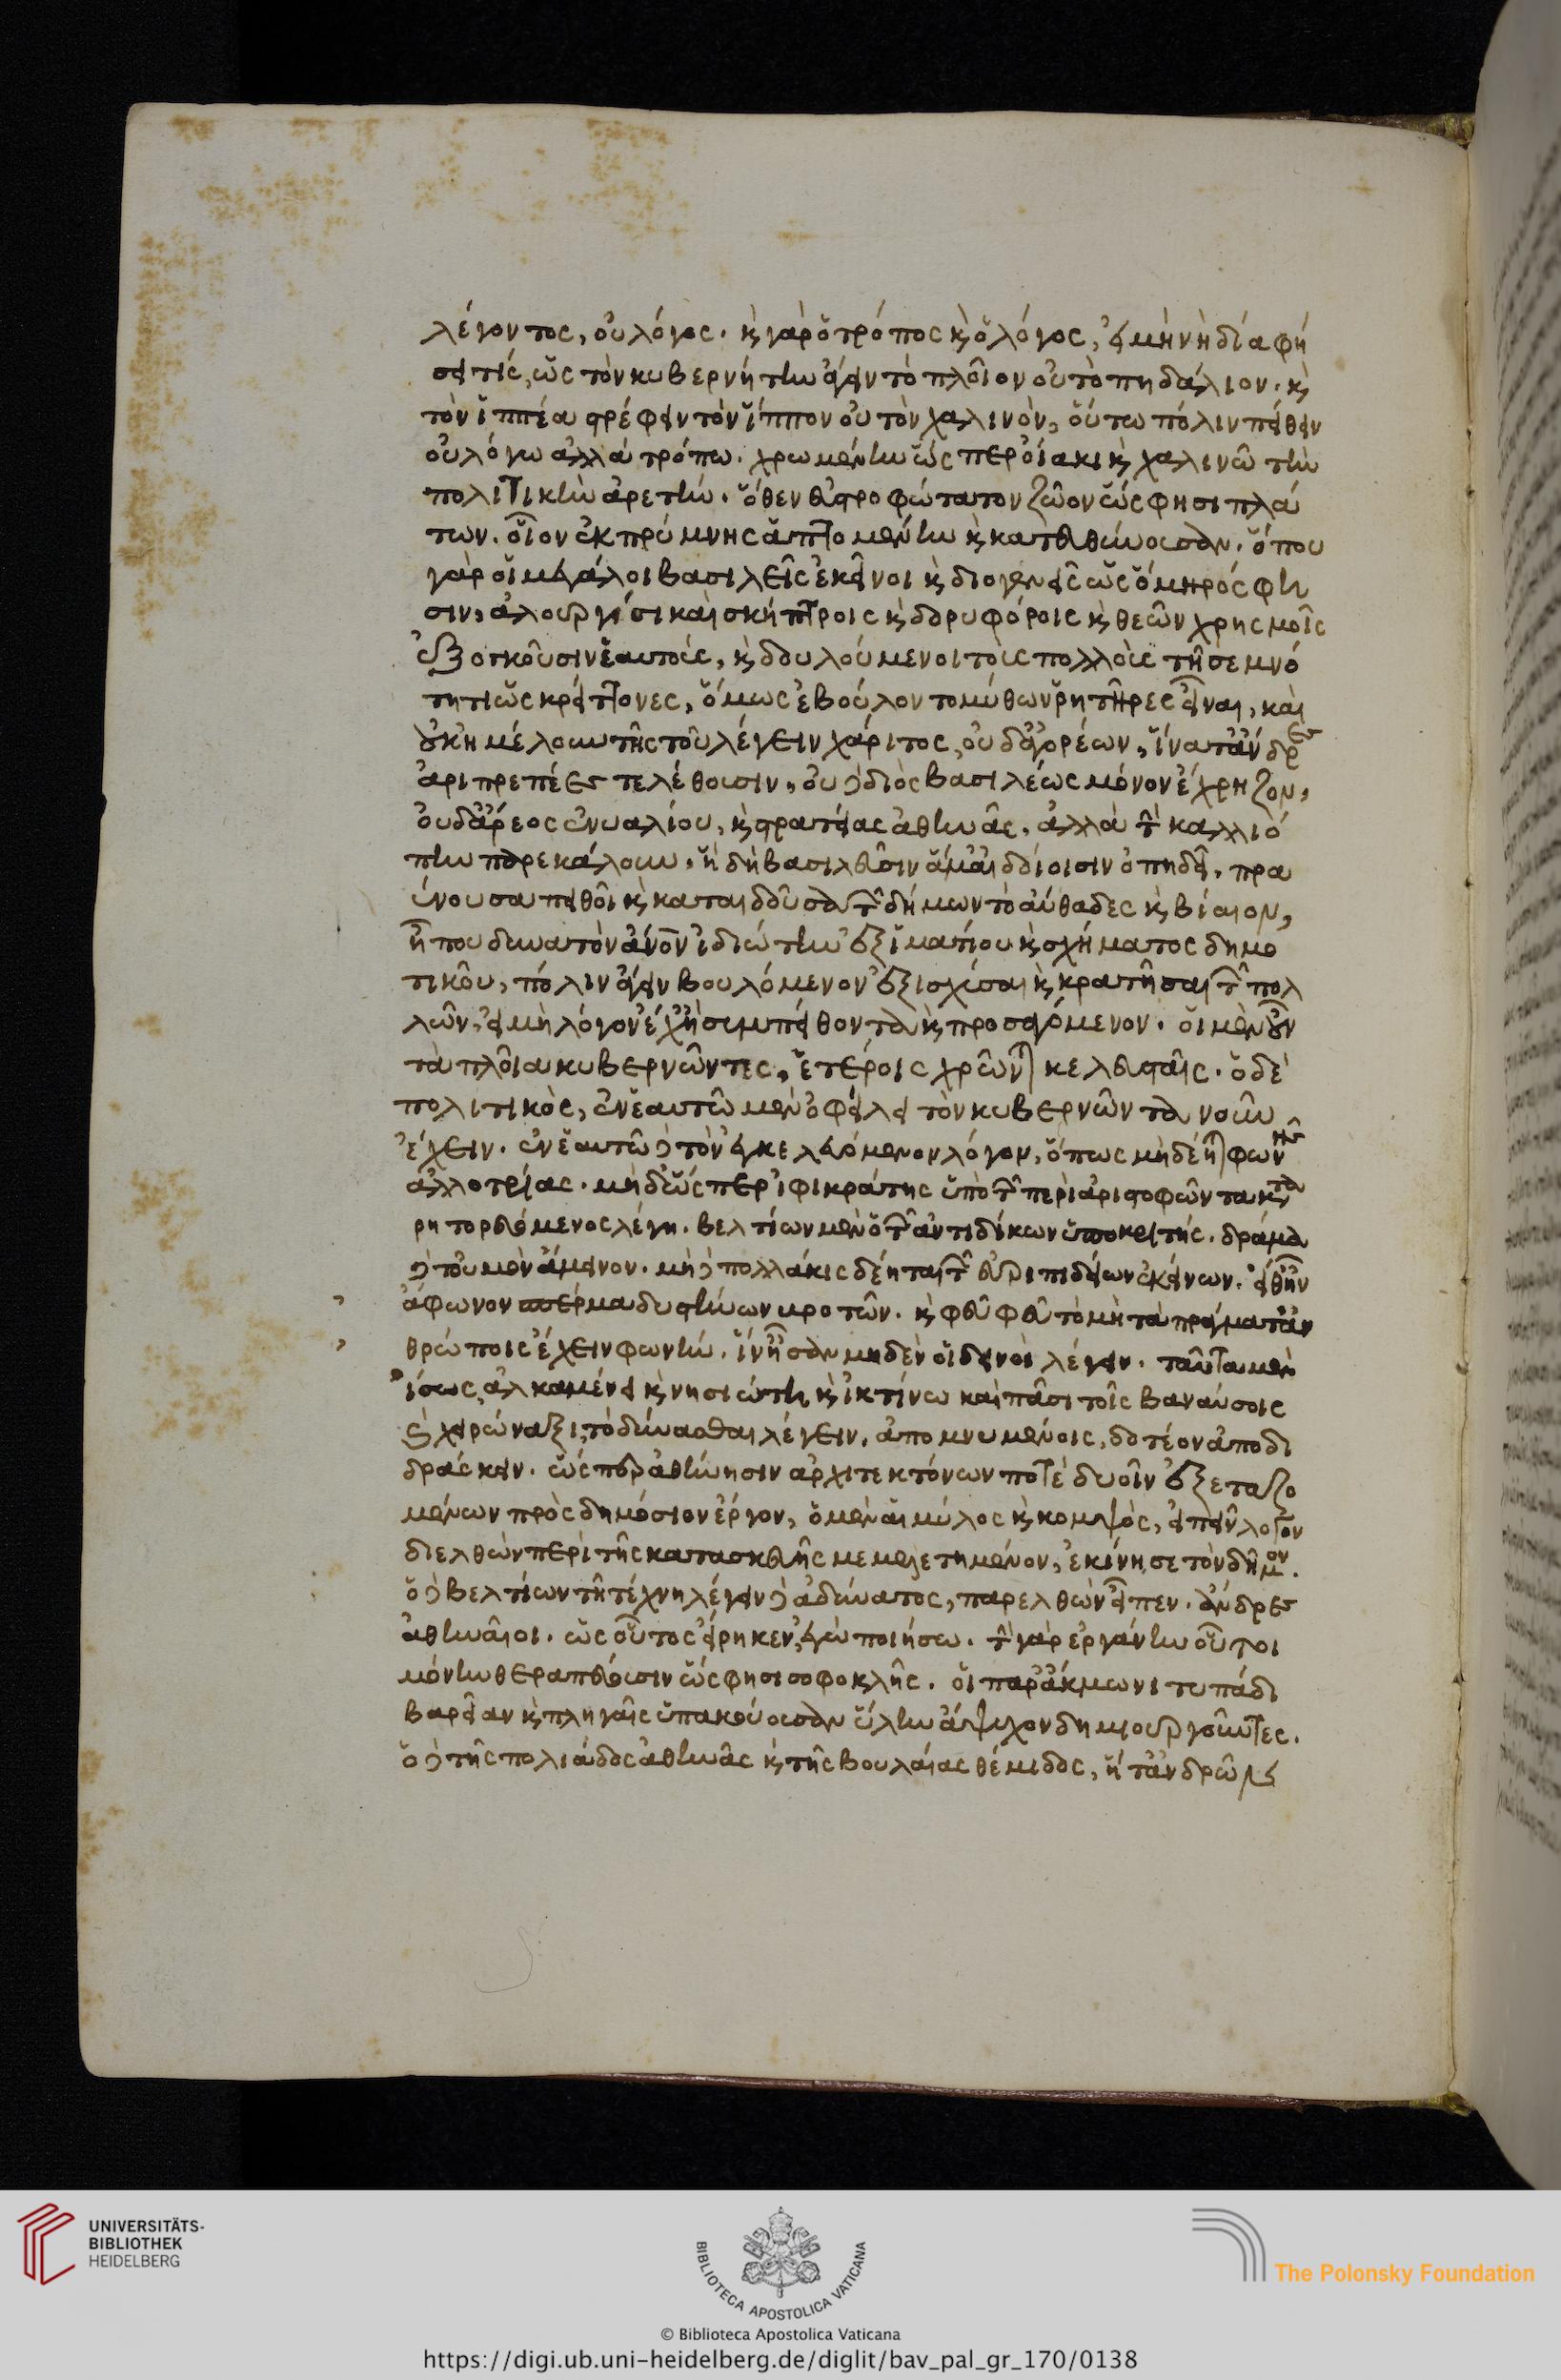 λέγοντος, οὐ λόγος. ϗ γὰρ ὁ τρόπος ϗ ὁ λόγος, εἰ μὴ νὴ δία φή
σει τίς, ὡς τὸν κυβερνήτην ἄγειν τὸ πλοῖον οὐ τὸ πηδάλιον. ϗ
τὸν ἱππέα στρέφειν τὸν ἵππον οὐ τὸν χαλινὸν, οὕτω πόλιν πείθειν
οὐ λόγω ἀλλὰ τρόπω. χρωμένην ὥσπερ οἴακι ϗ χαλινῶ τὴν
πολιτικὴν ἀρετήν. ὅθεν εὐστροφώτατον ζῶον ὥς φησι πλά
των. οἷον ἐκ πρύμνης ἁπτομένην ϗ κατευθύνουσαν. ὅπου
γὰρ οἱ μεγάλοι βασιλεῖς ἐκεῖνοι ϗ διογενεῖς ὡς ὅμηρός φη
σιν, ἁλουργίσι καὶ σκήπτροις ϗ δορυφόροις ϗ θεῶν χρησμοῖς
ἐξογκοῦσιν ἑαυτούς, ϗ δουλούμενοι τοὺς πολλοὺς τῆ σεμνό
τητι ὡς κρείττονες, ὅμως ἐβούλοντο μύθων ῥητῆρες εἶναι, καὶ
οὐκ ἠμέλουν τῆς τοῦ λέγειν χάριτος, οὐδ' ἀγορέων, ἵνα τ' ἄνδρες
ἀριπρεπέες τελέθουσιν, οὐ δὲ διὸς βασιλέως μόνον ἔχρηζον,
οὐδ' ἄρεος ἐνυαλίου, ϗ στρατείας ἀθηνᾶς. ἀλλὰ τὴν καλλιό
πην παρεκάλουν, ἣ δὴ βασιλεῦσιν ἅμ' αἰδοίοισιν ὀπηδεῖ. πρα
ΰνουσα πειθοῖ ϗ καταιδοῦσα τῶν δήμων τὸ αὔθαδες ϗ βίαιον,
ἦπου δυνατὸν ἄνον ἰδιώτην ἐξ ἱματίου ϗ σχήματος δημο
τικοῦ, πόλιν ἄγειν βουλόμενον ἐξισχῦσαι ϗ κρατῆσαι τῶν πολ
λῶν, εἰ μὴ λόγον ἔχη συμπείθοντα ϗ προσαγόμενον. οἱ μὲν οὖν
τὰ πλοῖα κυβερνῶντες, ἑτέροις χρῶνται κελευσταῖς. ὁ δὲ
πολιτικὸς, ἐν ἑαυτῶ μὲν ὀφείλει τὸν κυβερνῶντα νοῦν
ἔχειν. ἐν ἑαυτῶ δὲ τὸν ἐγκελευόμενον λόγον, ὅπως μὴ δέηται φωνῆς
ἀλλοτρίας. μὴ δ' ὥσπερ ἰφικράτης ὑπὸ τῶν περὶ ἀριστοφῶντα κατα
ρητορευόμενος λέγη. βελτίων μὲν ὁ τῶν ἀντιδίκων ὑποκριτής. δρᾶμα
δὲ τοὐμὸν ἄμεινον. μὴ δὲ πολλάκις δέηται τῶν εὐριπιδείων ἐκείνων. εἴθ' ἦν
ἄφωνον σπέρμα δυστήνων βροτῶν. ϗ φεῦ φεῦ τὸ μὴ τὰ πράγματ' ἀν
θρώποις ἔχειν φωνήν. ἵν' ἦσαν μηδὲν οἱ δεινοὶ λέγειν. ταῦτα μὲν
ἴσως ἀλκαμένει ϗ νησιώτη ϗ ἰκτίνω καὶ πᾶσι τοῖς βαναύσοις
ϗ χειρώναξι, τὸ δύνασθαι λέγειν, ἀπομνυμένοις, δοτέον ἀποδι
δράσκειν. ὥσπερ ἀθήνησιν ἀρχιτεκτόνων ποτὲ δυοῖν ἐξεταζο
μένων πρὸς δημόσιον ἔργον, ὁ μὲν αἱμύλος ϗ κομψὸς, εἰπεῖν λόγον
διελθὼν περὶ τῆς κατασκευῆς μεμελετημένον, ἐκίνησε τὸν δῆμον.
ὁ δὲ βελτίων τῆ τέχνη λέγειν δὲ ἀδύνατος, παρελθὼν εἶπεν. ἄνδρες
ἀθηναῖοι. ὡς οὗτος εἴρηκεν, ἐγὼ ποιήσω. τὴν γὰρ ἐργάνην οὗτοι
μόνην θεραπεύουσιν ὥς φησι σοφοκλῆς. οἱ παρ' ἄκμωνι τυπάδι
βαρεῖαν ϗ πληγαῖς ὑπακούουσαν ὕλην ἄψυχον δημιουργοῦντες.
ὁ δὲ τῆς πολιάδος ἀθηνᾶς ϗ τῆς βουλαίας θέμιδος, ἥ τ' ἀνδρῶν
UNIVERSITÄTS-
BIBLIOTHEK
HEIDELBERG
BIBLIOTECA APOSTOLICA VATICANA
The Polonsky Foundation
© Biblioteca Apostolica Vaticana
https://digi.ub.uni-heidelberg.de/diglit/bav_pal_gr_170/0138